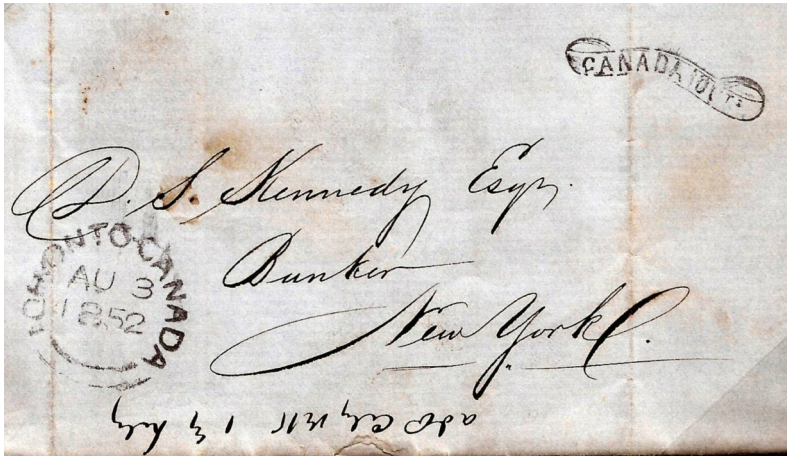 CANADA 10 Cts
D. S. Kennedy Esqr.
Banker
New York.
TORONTO-CANADA
AU 3
1852